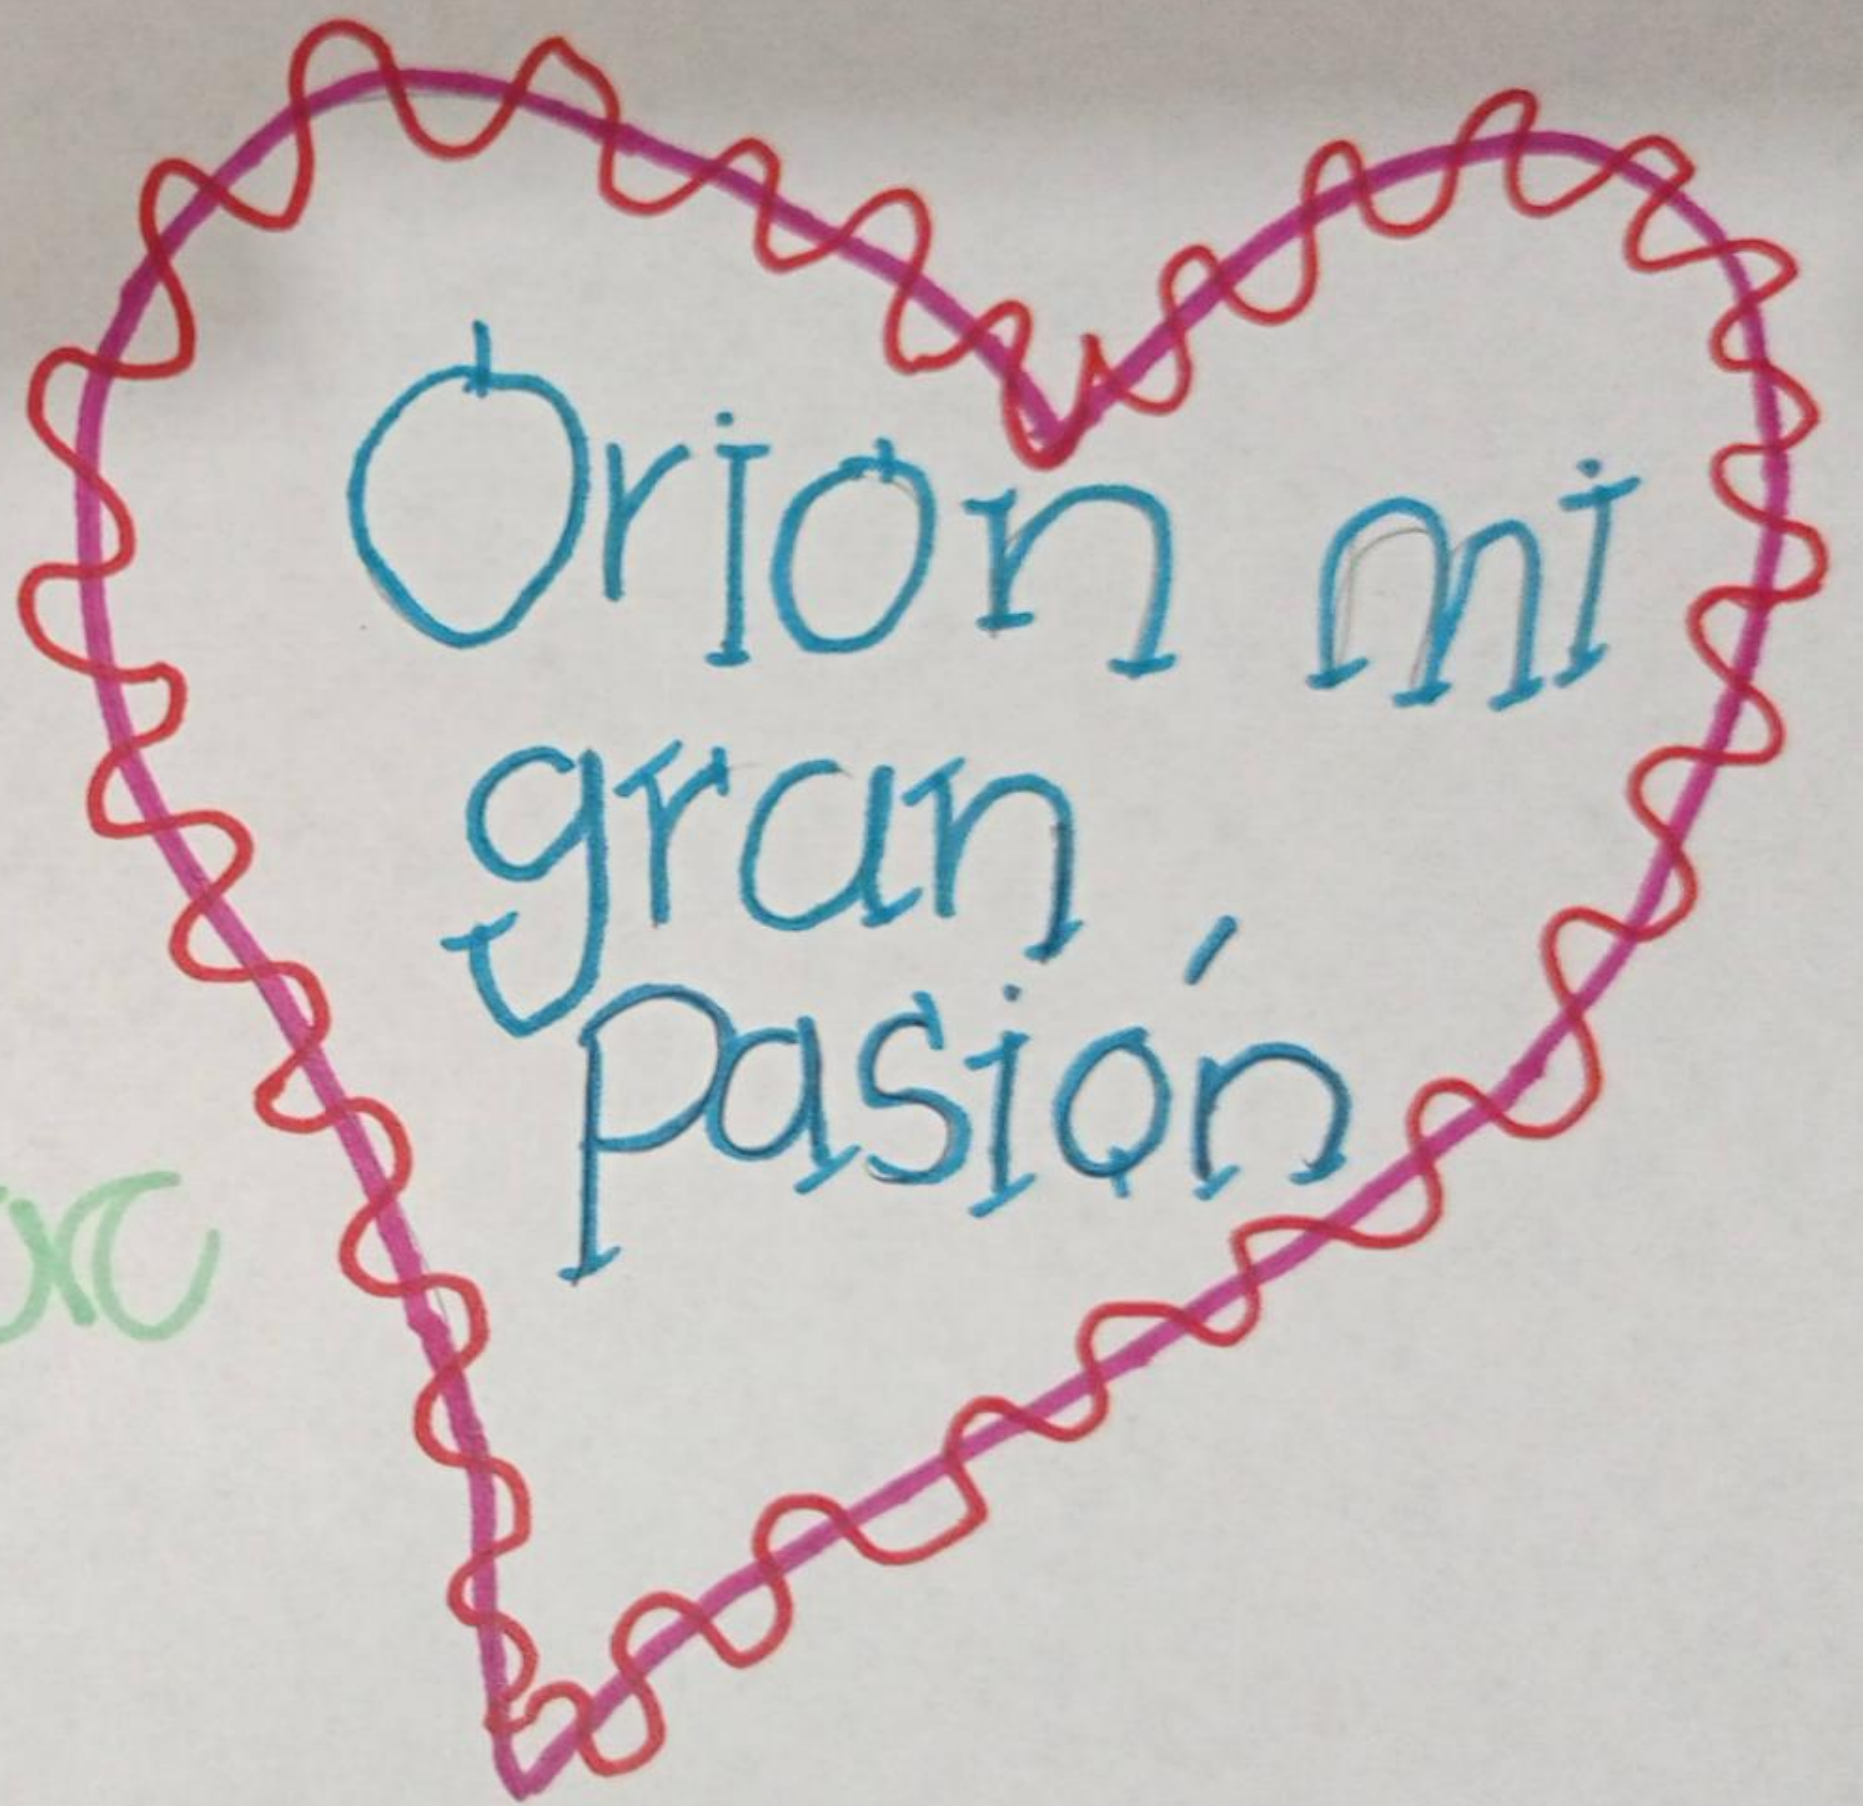 Orion mi
gran
pasión